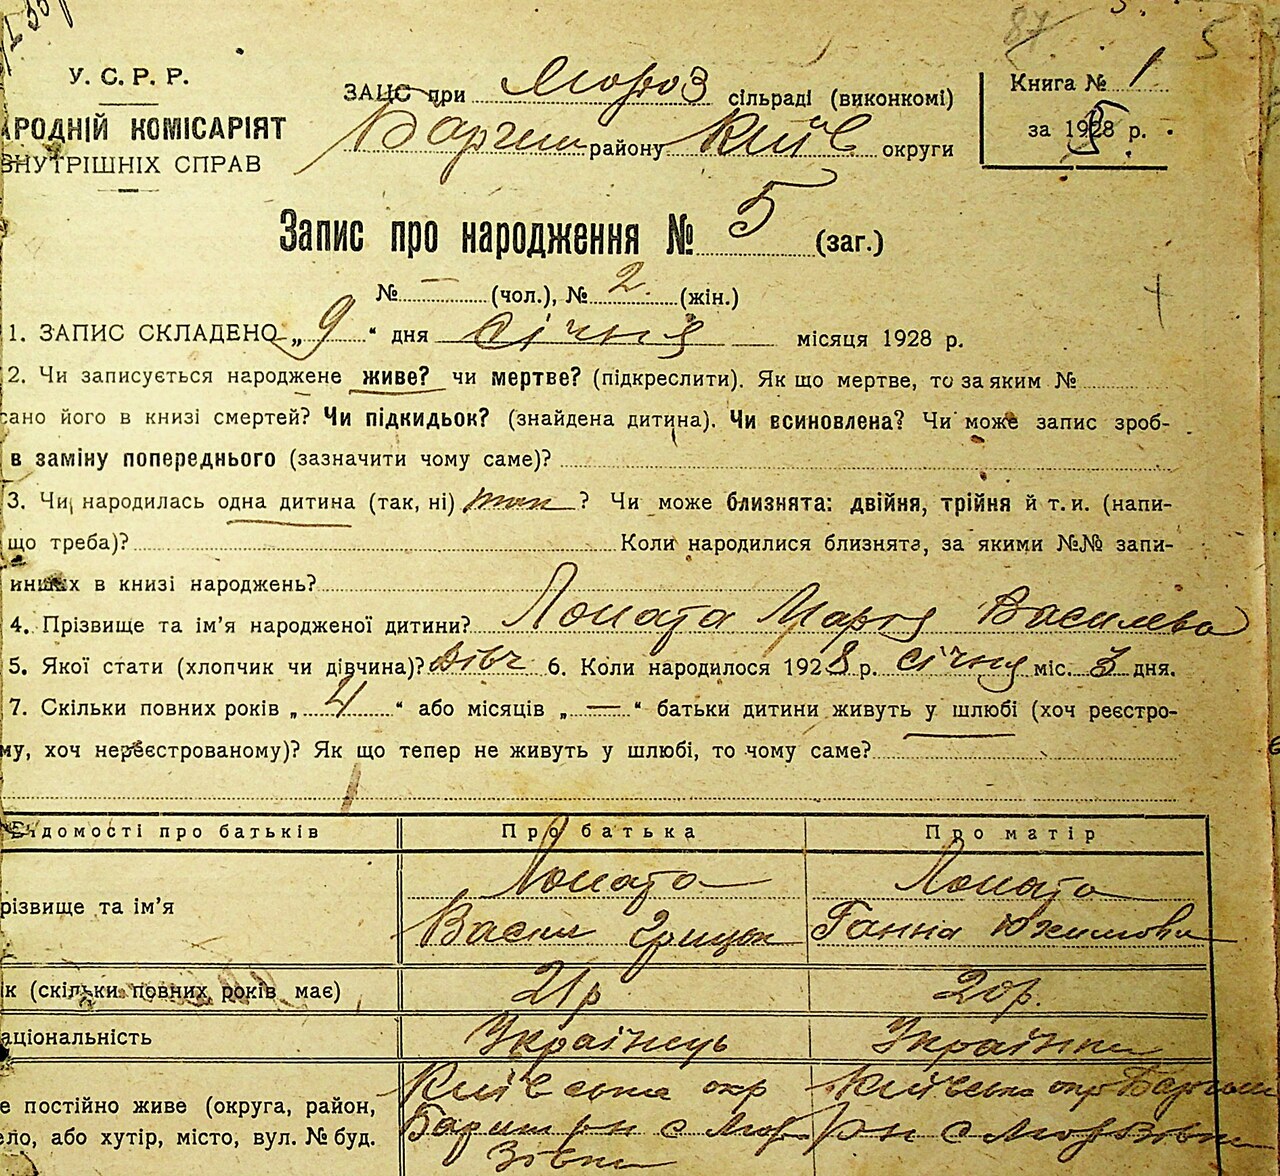 У. С. Р. Р.
АРОДНІЙ КОМІСАРІЯТ
ВНУТРІШНІХ СПРАВ
ЗАЦС при Мороз сільраді (виконкомі)
Баришів району Київ округи
Книга № 1
за 1928 р.
87
5
Запис про народження № 5 (заг.)
№ – (чол.), № 2 (жін.)
1. ЗАПИС СКЛАДЕНО „ 9 “ дня січня місяця 1928 р.
2. Чи записується народжене живе? чи мертве? (підкреслити). Як що мертве, то за яким №
сано його в книзі смертей? Чи підкидьок? (знайдена дитина). Чи всиновлена? Чи може запис зроб-
в заміну попереднього (зазначити чому саме)?
3. Чи народилась одна дитина (так, ні) так ? Чи може близнята: двійня, трійня й т. и. (напи-
що треба)? Коли народилися близнята, за якими №№ запи-
инших в книзі народжень?
4. Прізвище та ім’я народженої дитини? Лопата Марія Василева
5. Якої стати (хлопчик чи дівчина)? дівч 6. Коли народилося 1928 р. січня міс. 3 дня.
7. Скільки повних років „ 4 “ або місяців „ — “ батьки дитини живуть у шлюбі (хоч реєстро-
му, хоч нереєстрованому)? Як що тепер не живуть у шлюбі, то чому саме?
Відомості про батьків Про батька Про матір
різвище та ім’я Лопата Лопата
Васил Грицьк Ганна Юхимовна
к (скільки повних років має) 21 р 20 р.
аціональність Українець Українка
е постійно живе (округа, район, Київська окр Київська окр Баришів
ело, або хутір, місто, вул. № буд. Бариш рн с Мор рн с Морозівка
зівка